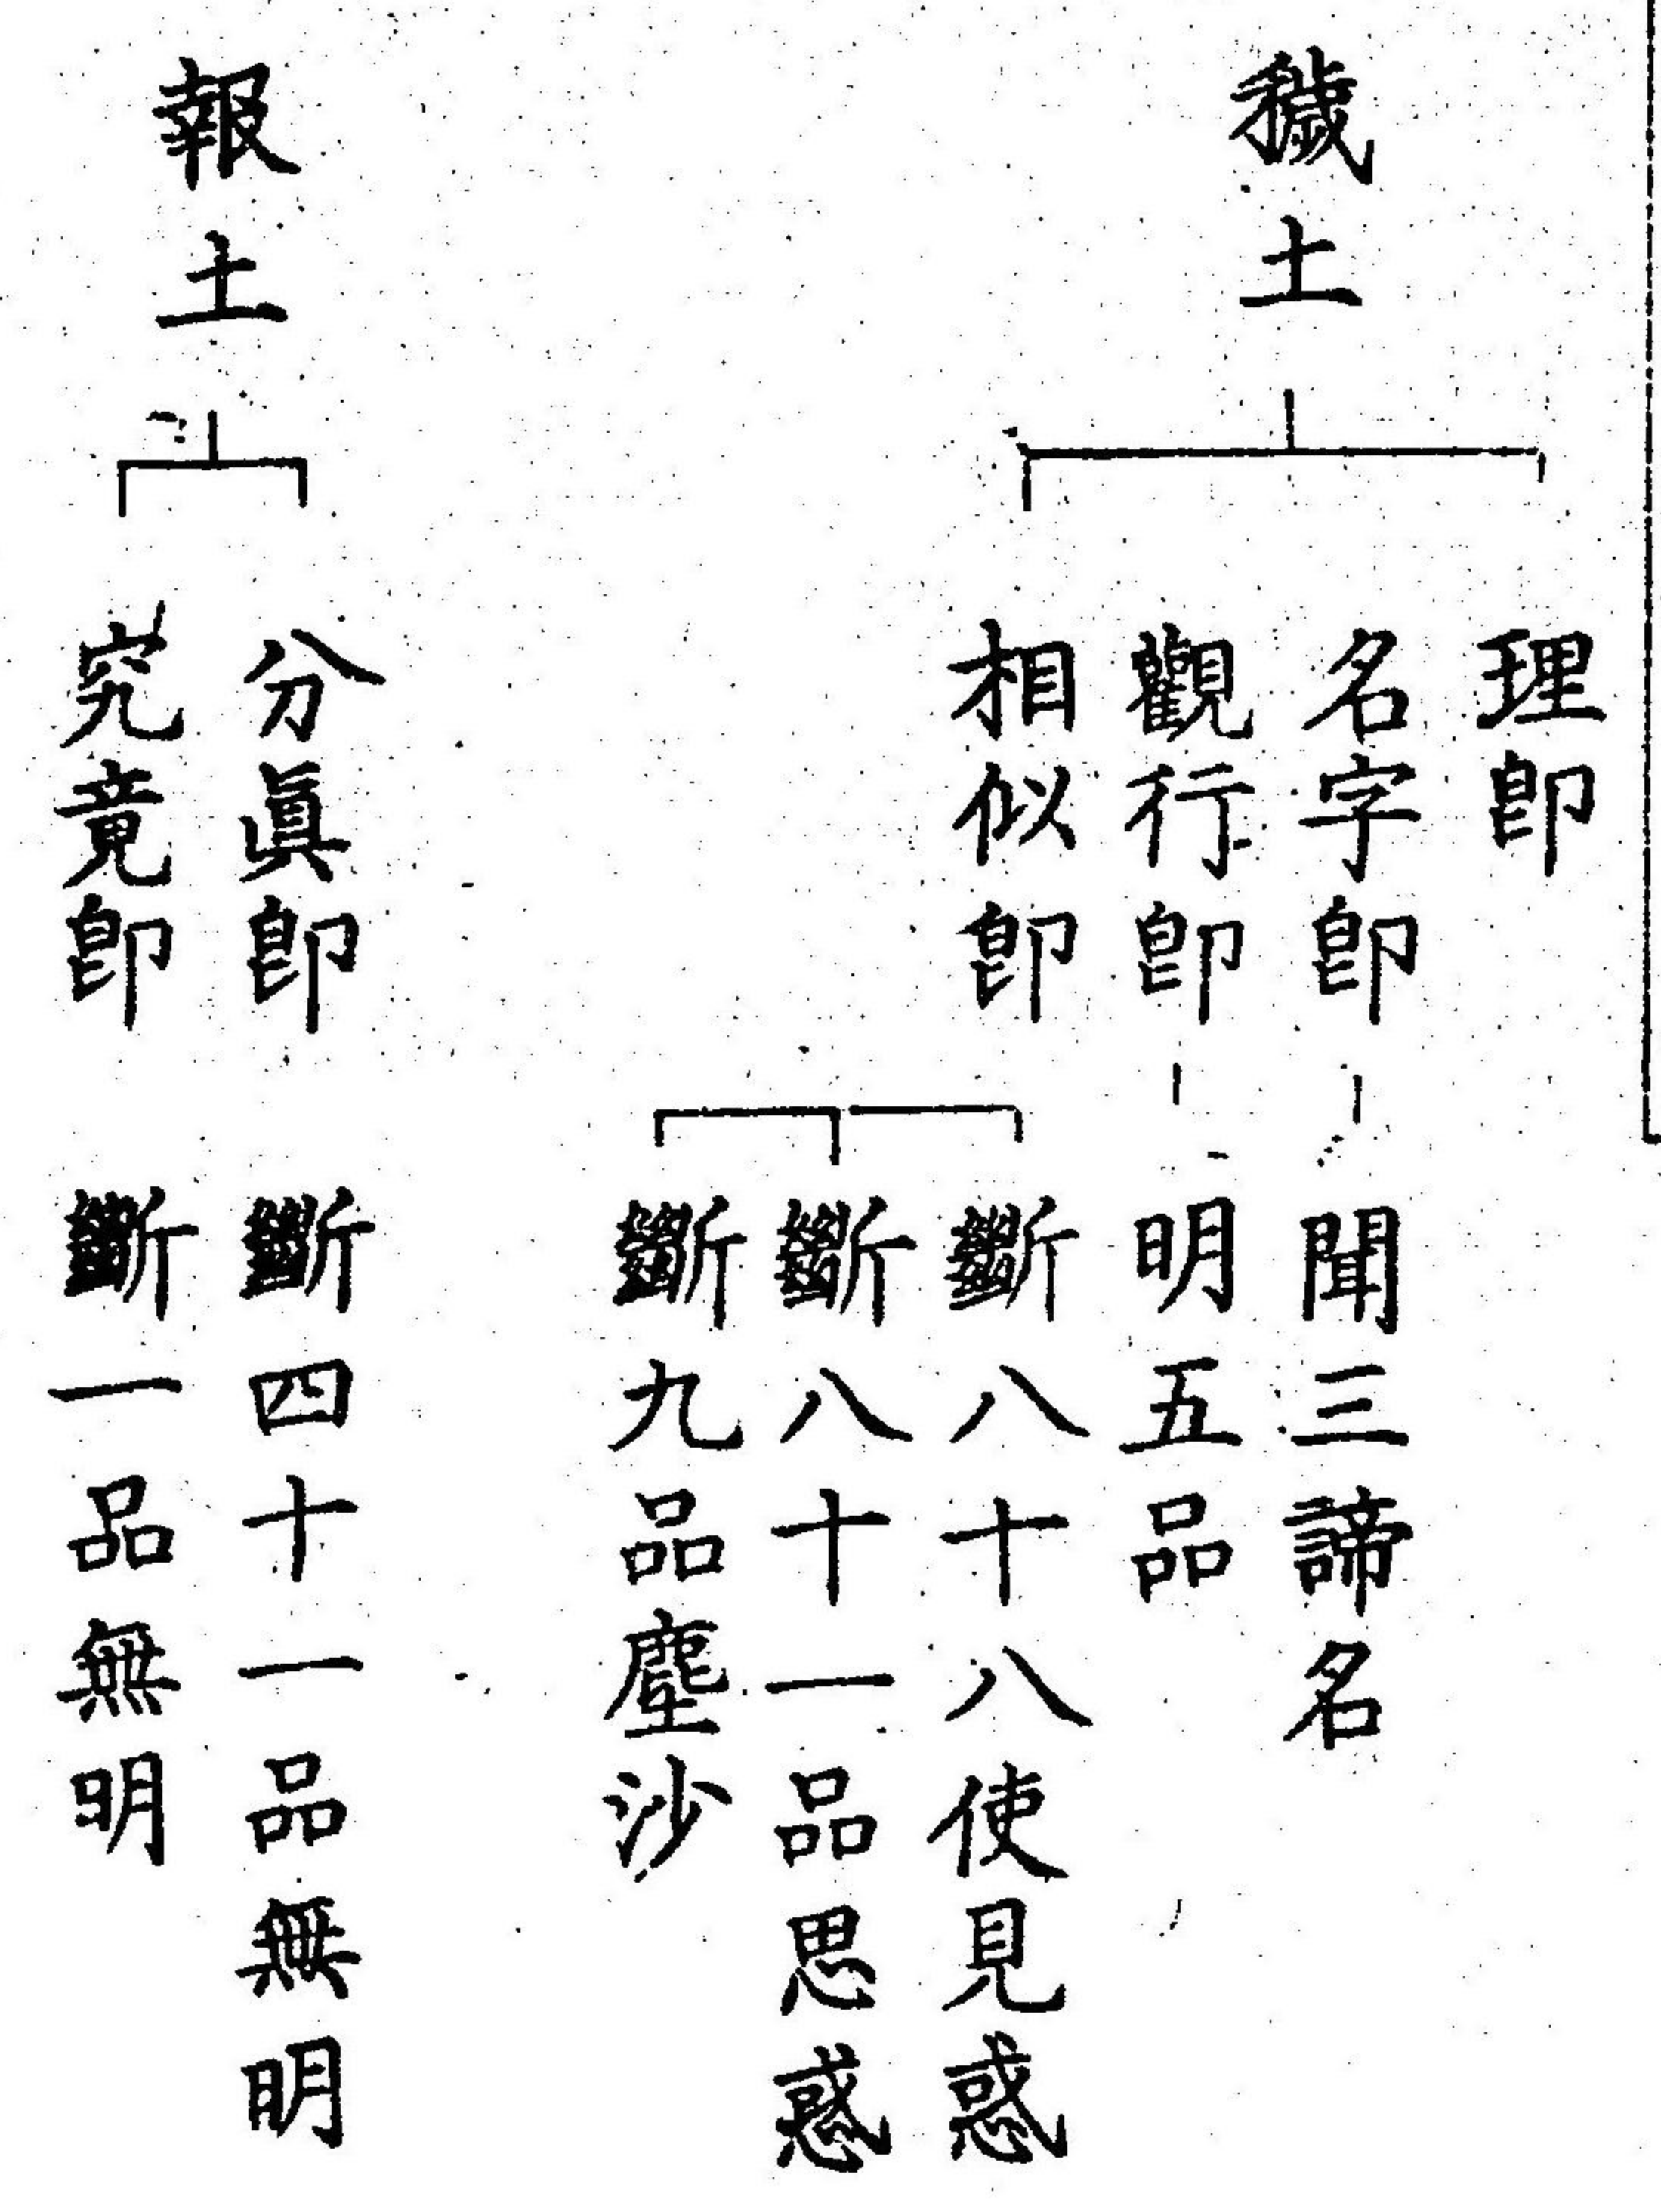 穢土
理卽
名字卽
聞三諦名
觀行卽
明五品
相似卽
斷八十八使見惑
斷八十一品思惑
斷九品塵沙
報土
分眞卽
斷四十一品無明
究竟卽
斷一品無明